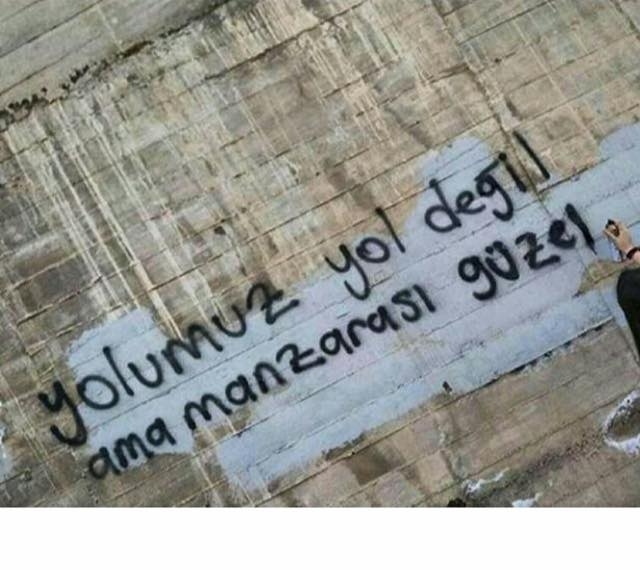 yolumuz yol değil
ama manzarası güzel